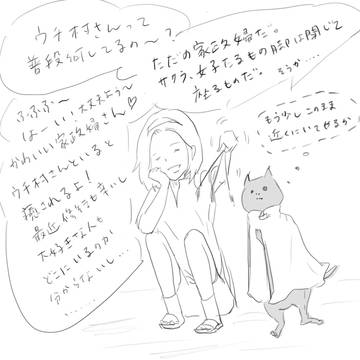 ウチ村さんって
普段何してるの〜？
ただの家政婦だ。
サクラ、女子たるもの脚は閉じて
座るものだ。
そうか……
ふふふ〜
はーい！大丈夫よう〜
かわいい家政婦さん♡
ウチ村さんといると
癒されるよ！
最近修行も辛いし
大好きな人も
どこにいるのか
分からないし…
……
もう少しこのまま
近くにいてやるか